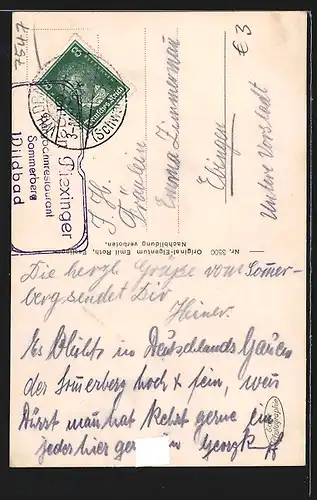 7547
€ 3
8
Deutsches Reich
WILDBAD
(SCHW
Plexinger
Höhenrestaurant
Sommerberg
Wildbad
S. H.
Fräulein
Emma Zimmermann
Ebingen
Untere Vorstadt
Nr. 3300 Original-Eigentum Emil Roth,
Nachbildung verboten.
Die herzl. Grüsse vom Somer-
berg sendet Dir
Heiner.
Es Blühts in Deutschlands Gauen
der Somerberg hoch & fein, wen
Durst man hat Kehrt gerne ein
jeder hier Georg
Echte
Photographie